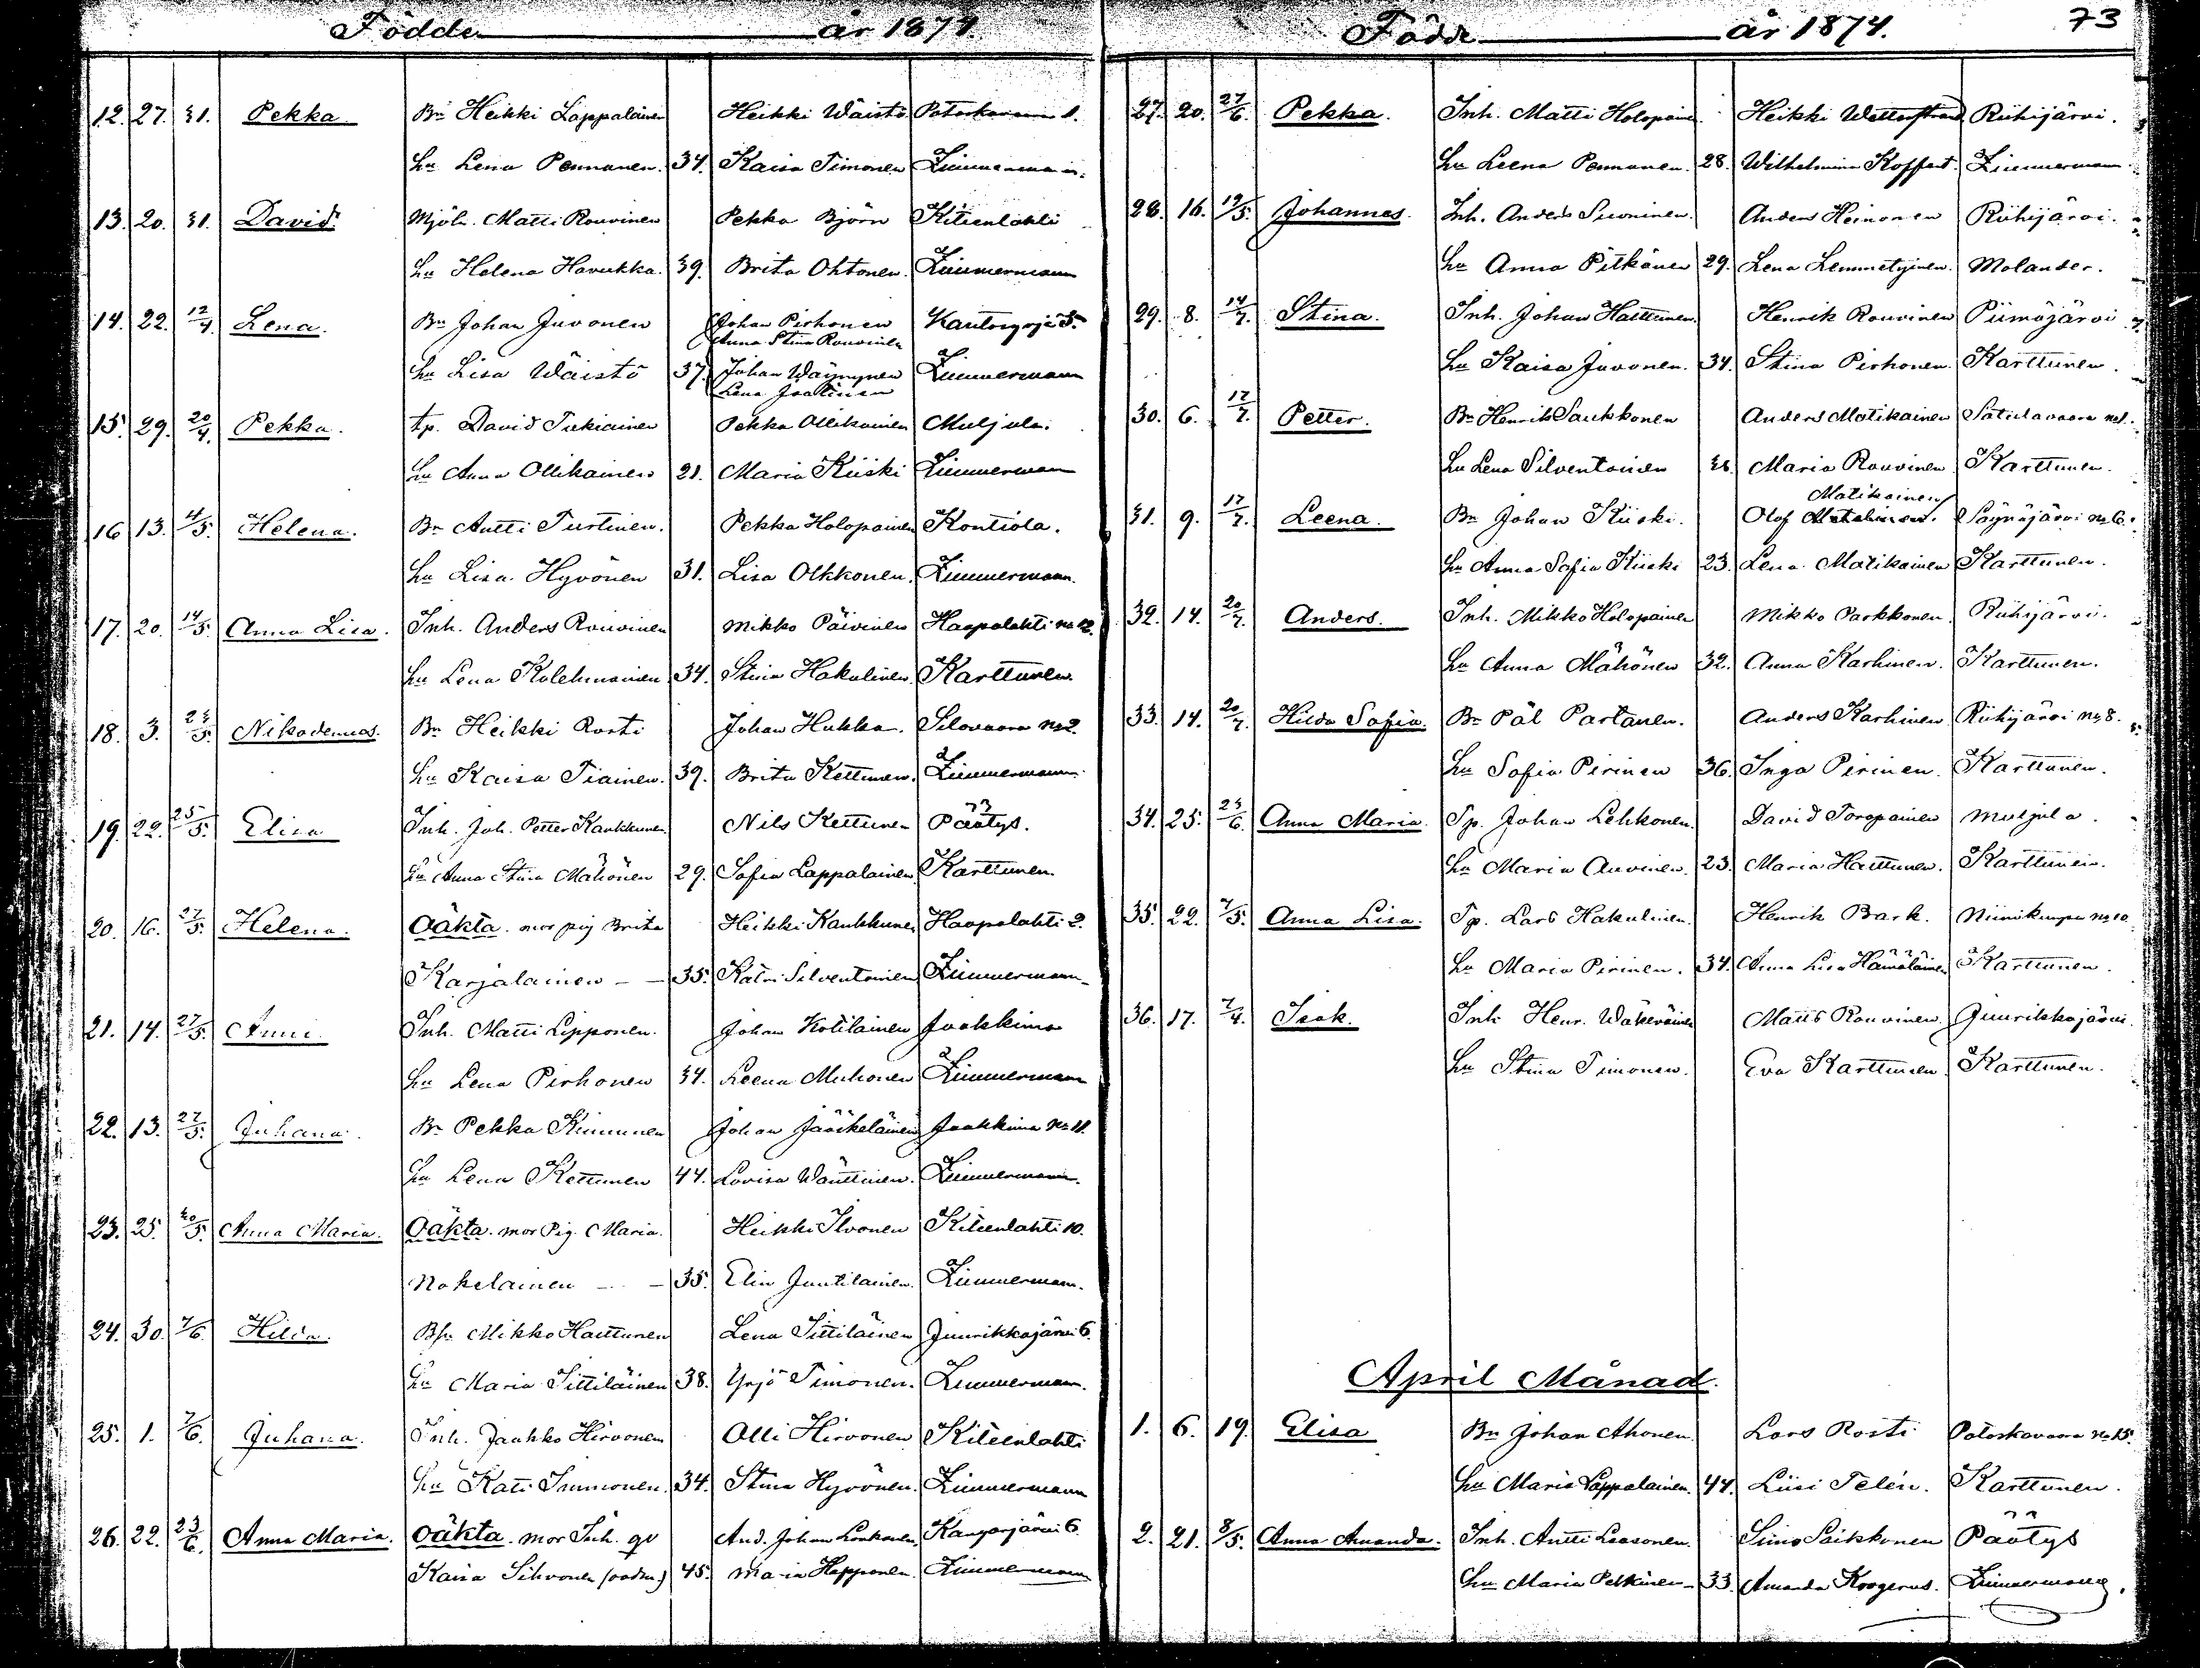 Födde år 1874.
12. 27. 31. Pekka. Bn Heikki Lappalainen Heikki Wäistö Potoskavaara 1.
hu Lena Pennanen. 34. Kaisa Timonen Zimmermann.
13. 20. 31. David. Mjöln. Matti Rouvinen Pekka Björn Kiteenlahti
hu Helena Havukka. 39. Brita Ohtonen. Zimmermann
14. 22. 12/4. Lena. Bn Johan Juvonen Johan Pirhonen Kantosyrjä 5.
Anna Stina Rouvinen
hu Lisa Wäistö 37. Johan Wäyrynen Zimmermann
Lena Jaatinen
15. 29. 20/4. Pekka. tp. David Tukiainen Pekka Ollikainen Muljula.
hu Anna Ollikainen 21. Maria Kiiski Zimmermann
16 13. 4/5. Helena. Bn Antti Turtinen. Pekka Holopainen Kontiola.
hu Lisa Hyvönen 31. Lisa Olkkonen. Zimmermann.
17. 20. 14/5. Anna Lisa. Inh. Anders Rouvinen Mikko Päivinen Haapalahti no 12.
hu Lena Kolehmainen 34. Stina Hakulinen. Karttunen.
18. 3. 23/5. Nikodemus. Bn Heikki Rosti Johan Hukka. Silovaara no 2.
hu Kaisa Tiainen. 39. Brita Kettunen. Zimmermann.
19. 22. 25/5. Elisa Inh. Joh. Petter Kaukkunen Nils Kettunen Päätys.
hu Anna Stina Mähönen 29. Sofia Lappalainen Karttunen.
20. 16. 27/5. Helena. Oäkta. mor pig Brita Heikki Kaukkunen Haapalahti 2.
Karjalainen – – 35. Katri Silventoinen Zimmermann.
21. 14. 27/5. Anni. Inh. Matti Lipponen. Johan Kotilainen Jaakkima
hu Lena Pirhonen 34. Leena Muhonen Zimmermann
22. 13. 27/5. Juhana. Bn Pekka Kinnunen Johan Jääskeläinen Jaakkima no 11.
hu Lena Kettunen 44. Lovisa Wänttinen. Zimmermann.
23. 25. 30/5. Anna Maria. Oäkta. mor Pig. Maria. Heikki Ilvonen Kiteenlahti 10.
Nokelainen – – 35. Elin Juutilainen. Zimmermann.
24. 30. 7/6. Hilda. Bsn Mikko Harttunen Lena Tittiläinen Juurikkajärvi 6.
hu Maria Tittiläinen 38. Yrjö Timonen. Zimmermann.
25. 1. 7/6. Juhana. Inh. Jaakko Hirvonen Olli Hirvonen Kiteenlahti
hu Kati Immonen. 34. Stina Hyvönen. Zimmermann
26. 22. 23/6. Anna Maria. Oäkta. mor Inh. qv And. Johan Lonkonen Kangasjärvi 6.
Kaisa Sihvonen 45. Maria Happonen. Zimmermann
Födde år 1874. 73
27. 20. 27/6. Pekka. Inh. Matti Holopainen. Heikki Wetterstrand Riihijärvi.
hu Leena Pennanen. 28. Wilhelmina Koffert. Zimmermann.
28. 16. 19/5. Johannes. Inh. Anders Suoninen. Anders Heinonen Riihijärvi.
hu Anna Pitkänen 29. Lena Lemmetyinen. Molander.
29. 8. 14/7. Stina. Inh. Johan Harttunen. Henrik Rouvinen Piimäjärvi
hu Kaisa Juvonen. 34. Stina Pirhonen. Karttunen.
30. 6. 17/7. Petter. Bn Henrik Saukkonen Anders Matikainen Satulavaara no 1.
hu Lena Silventoinen Maria Rouvinen Karttunen.
Matikainen
31. 9. 17/7. Leena. Bn Johan Kiiski. Olof Säynejärvi no 6.
hu Anna Sofia Kiiski 23. Lena Matikainen Karttunen.
32. 14. 20/7. Anders. Inh. Mikko Holopainen Mikko Parkkonen. Riihijärvi.
hu Anna Mähönen 32. Anna Karhinen. Karttunen.
33. 14. 20/7. Hilda Sofia. Bn Pål Partanen. Anders Karhinen Riihijärvi no 8.
hu Sofia Pirinen 36. Inga Pirinen. Karttunen.
34. 25. 23/6. Anna Maria. Tp. Johan Lehkonen. David Toropainen Muljula.
hu Maria Auvinen. 23. Maria Harttunen. Karttunen.
35. 22. 7/5. Anna Lisa. Tp. Lars Hakulinen. Henrik Bark. Niinikumpu no 10.
hu Maria Pirinen. 34. Anna Lisa Hämäläinen Karttunen.
36. 17. 7/4. Isak. Inh Henr. Wäkeväinen Matts Rouvinen. Juurikkajärvi.
hu Stina Timonen. Eva Karttunen. Karttunen.
April Månad.
1. 6. 19. Elisa Bn Johan Ahonen. Lars Rosti Potoskavaara no 15.
hu Maria Lappalainen. 44. Liisi Telén. Karttunen.
2. 21. 8/5. Anna Amanda. Inh. Antti Laasonen. Simo Saikkonen Päätys
hu Maria Petkinen 33. Amanda Krogerus. Zimmermann.